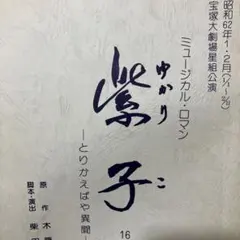 昭和62年1・2月(1/1-
宝塚大劇場星組公演
ミュージカル・ロマン
紫子
ゆかりこ
―とりかえばや異聞―
16
原作・木
脚本・演出・柴